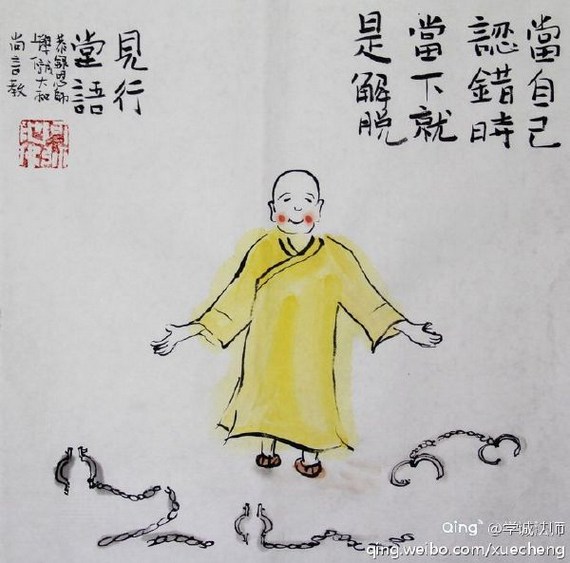 當自己
認錯時
當下就
是解脱
見行
堂語
恭錄恩師
學誠大和
尚言教
Qing @学诚法师
qing.weibo.com/xuecheng